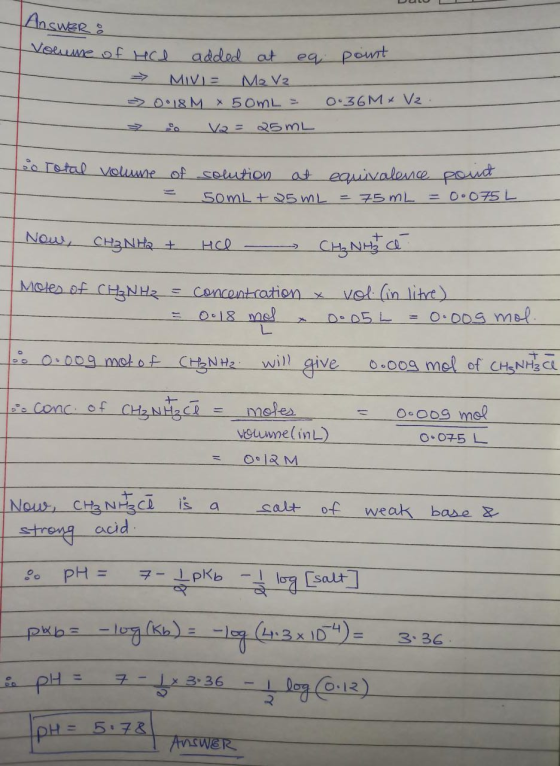 Answer :
Volume of HCl added at eq. point
⇒ M1V1 = M2V2
⇒ 0.18M × 50mL = 0.36M × V2.
⇒ ∴ V2 = 25mL
∴ Total volume of solution at equivalence point
= 50mL + 25mL = 75mL = 0.075L
Now, CH3NH2 + HCl ⟶ CH3NH3⁺Cl⁻
Moles of CH3NH2 = concentration × vol. (in litre)
= 0.18 mol/L × 0.05L = 0.009 mol.
∴ 0.009 mol of CH3NH2 will give 0.009 mol of CH3NH3⁺Cl⁻
∴ Conc. of CH3NH3⁺Cl⁻ = moles / volume (in L) = 0.009 mol / 0.075 L
= 0.12M
Now, CH3NH3⁺Cl⁻ is a salt of weak base &
strong acid.
∴ pH = 7 - 1/2 pKb - 1/2 log [salt]
pKb = -log(Kb) = -log(4.3 × 10⁻⁴) = 3.36.
∴ pH = 7 - 1/2 × 3.36 - 1/2 log(0.12)
pH = 5.78 Answer